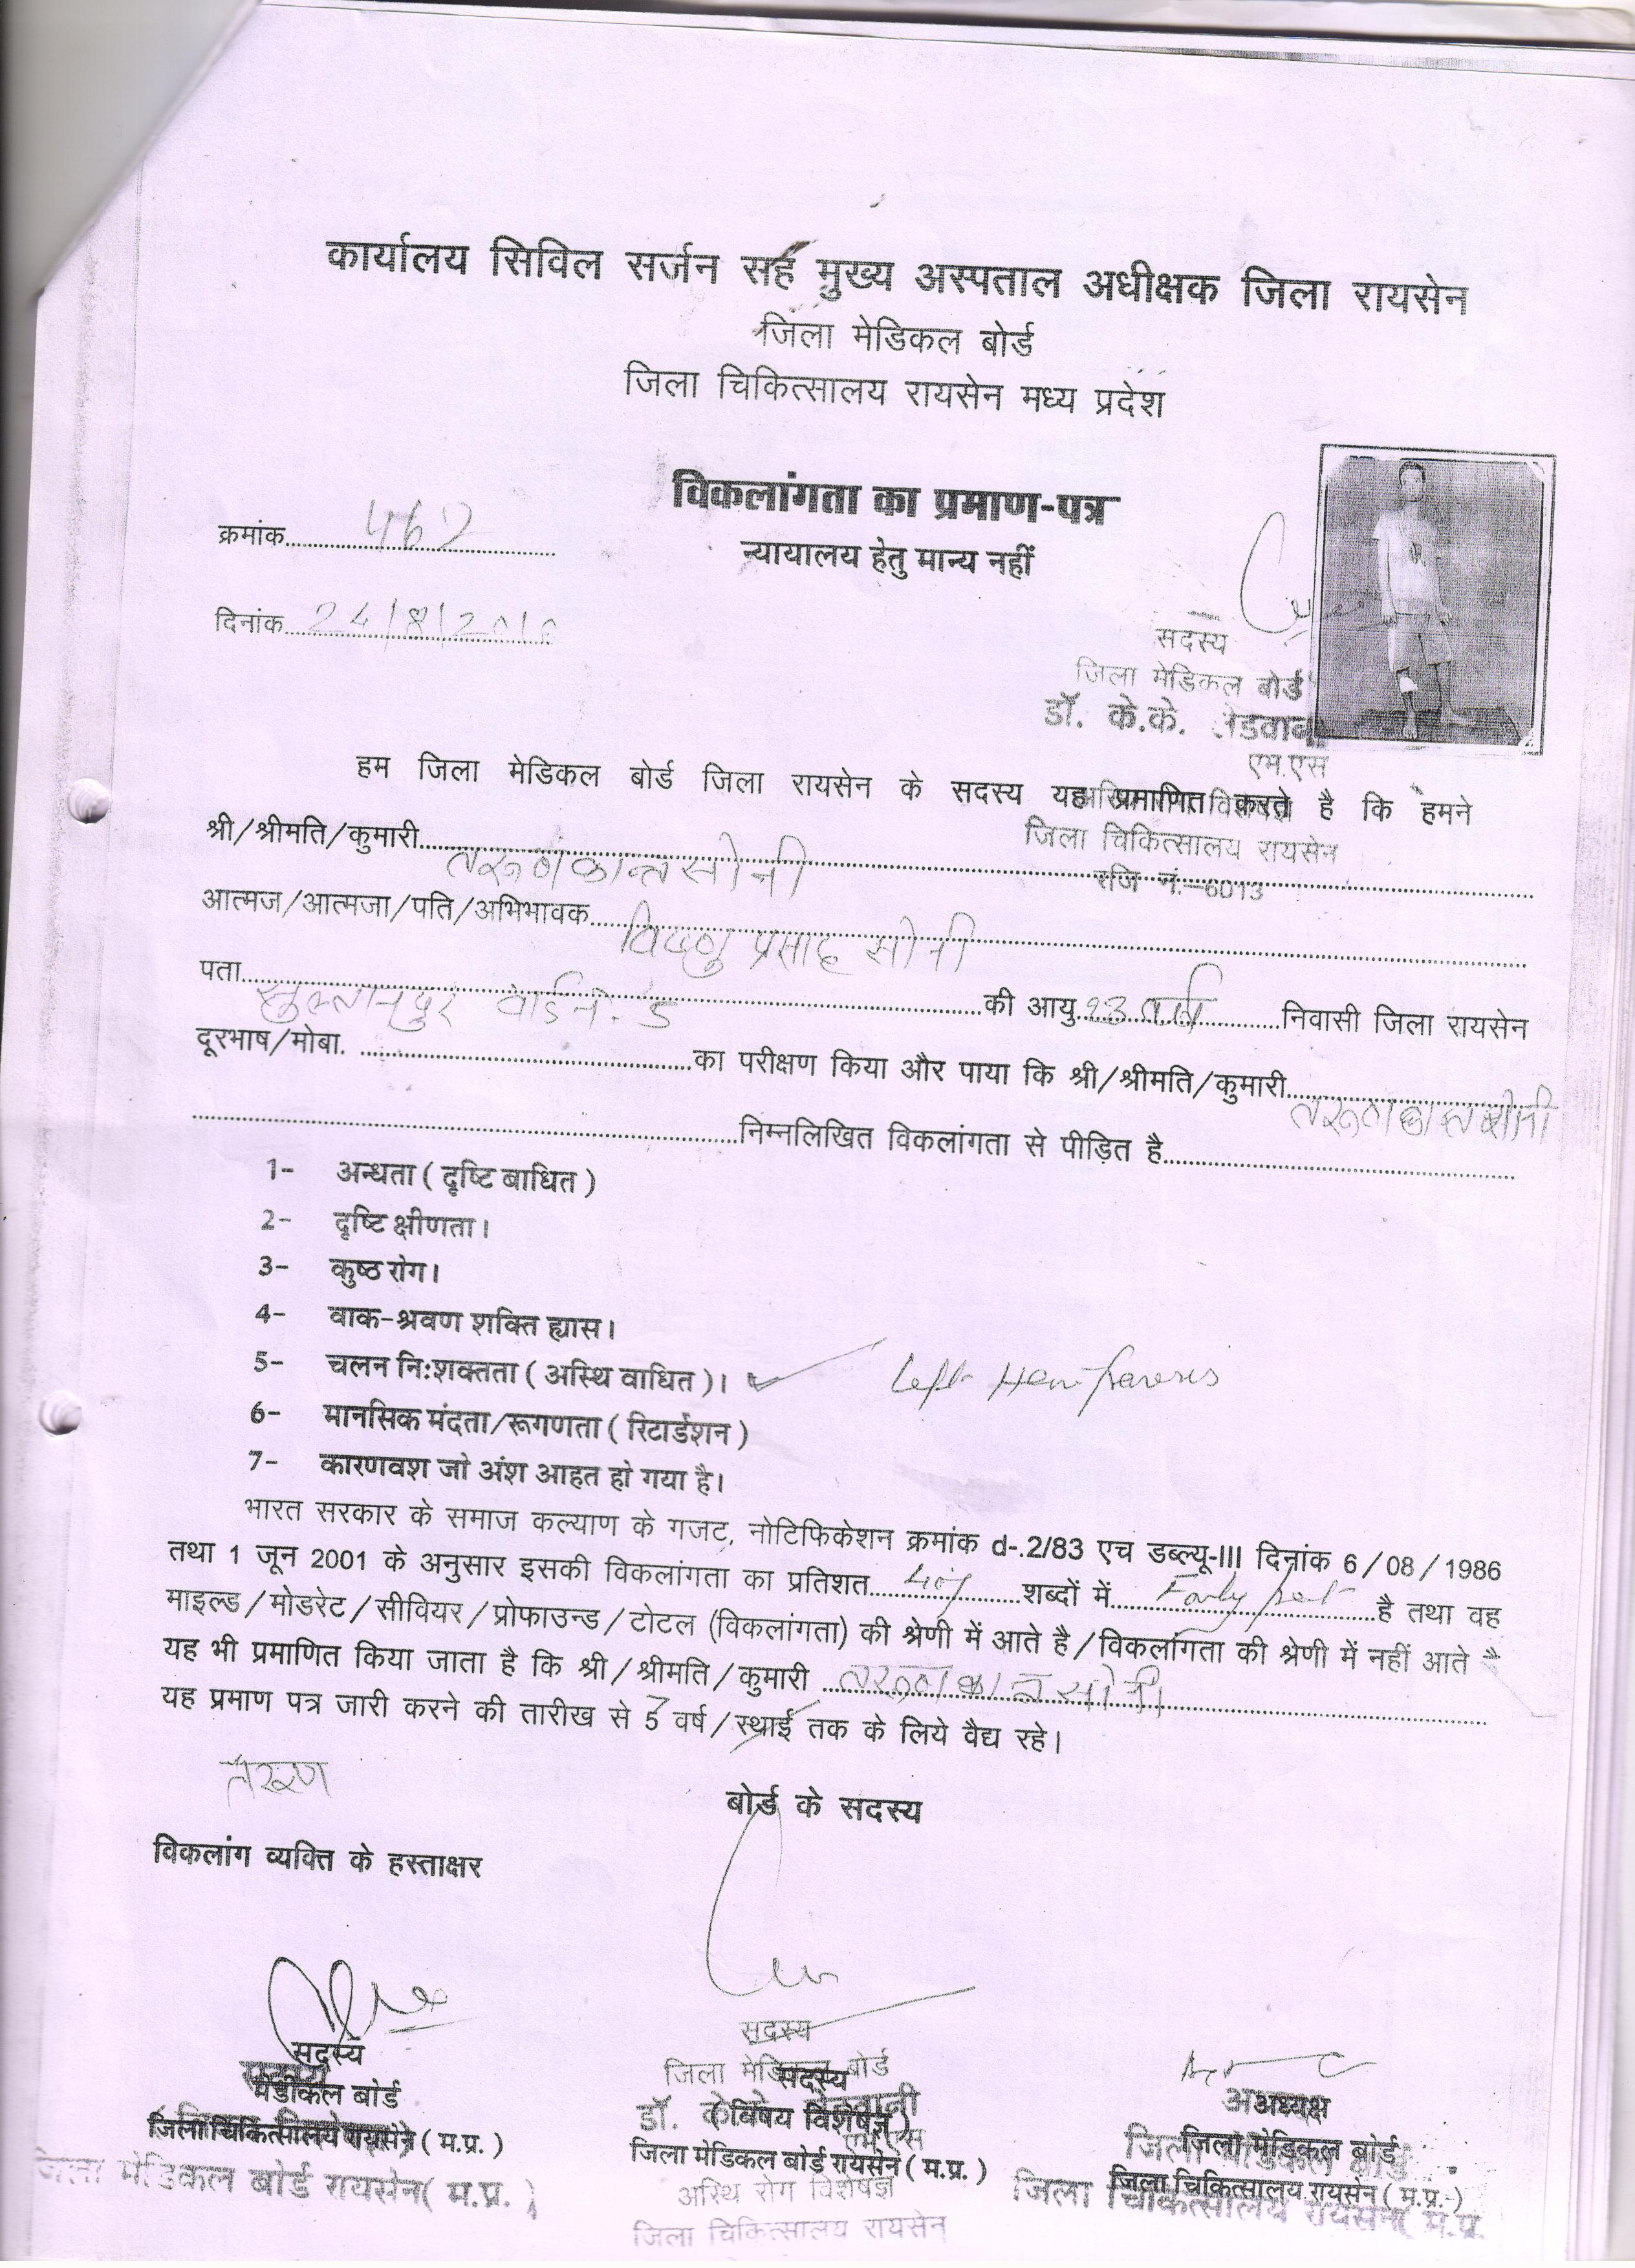 कार्यालय सिविल सर्जन सह मुख्य अस्पताल अधीक्षक जिला रायसेन
जिला मेडिकल बोर्ड
जिला चिकित्सालय रायसेन मध्य प्रदेश
विकलांगता का प्रमाण-पत्र
क्रमांक
न्यायालय हेतु मान्य नहीं
दिनांक 24/8/2010
सदस्य
जिला मेडिकल बोर्ड
डॉ. के.के.
एम.एस
हम जिला मेडिकल बोर्ड जिला रायसेन के सदस्य यह प्रमाणित करते है कि हमने
श्री/श्रीमति/कुमारी तरूणकान्त सोनी
जिला चिकित्सालय रायसेन
रजि नं.-6013
आत्मज/आत्मजा/पति/अभिभावक विष्णु प्रसाद सोनी
पता सुल्तानपुर वार्ड नं. 5 की आयु 13 वर्ष निवासी जिला रायसेन
दूरभाष/मोबा. का परीक्षण किया और पाया कि श्री/श्रीमति/कुमारी तरूणकान्त सोनी
निम्नलिखित विकलांगता से पीड़ित है
1- अन्धता ( दृष्टि बाधित )
2- दृष्टि क्षीणता।
3- कुष्ठ रोग।
4- वाक-श्रवण शक्ति ह्यास।
5- चलन निःशक्तता ( अस्थि वाधित )। ✓ Left Hemiparesis
6- मानसिक मंदता/रूगणता ( रिटार्डशन )
7- कारणवश जो अंश आहत हो गया है।
भारत सरकार के समाज कल्याण के गजट, नोटिफिकेशन क्रमांक d-.2/83 एच डब्ल्यू-III दिनांक 6/08/1986
तथा 1 जून 2001 के अनुसार इसकी विकलांगता का प्रतिशत 40% शब्दों में है तथा वह
माइल्ड/मोडरेट/सीवियर/प्रोफाउन्ड/टोटल (विकलांगता) की श्रेणी में आते है/विकलांगता की श्रेणी में नहीं आते है
यह भी प्रमाणित किया जाता है कि श्री/श्रीमति/कुमारी तरूणकान्त सोनी
यह प्रमाण पत्र जारी करने की तारीख से 5 वर्ष/स्थाई तक के लिये वैद्य रहे।
तरूण
बोर्ड के सदस्य
विकलांग व्यक्ति के हस्ताक्षर
सदस्य
मेडीकल बोर्ड
जिला चिकित्सालय रायसेन ( म.प्र. )
जिला मेडिकल बोर्ड रायसेन( म.प्र. )
सदस्य
जिला मेडिकल बोर्ड
सदस्य
( विषय विशेषज्ञ )
जिला मेडिकल बोर्ड रायसेन ( म.प्र. )
अस्थि रोग विशेषज्ञ
जिला चिकित्सालय रायसेन
अध्यक्ष
जिला मेडिकल बोर्ड
जिला चिकित्सालय रायसेन ( म.प्र. )